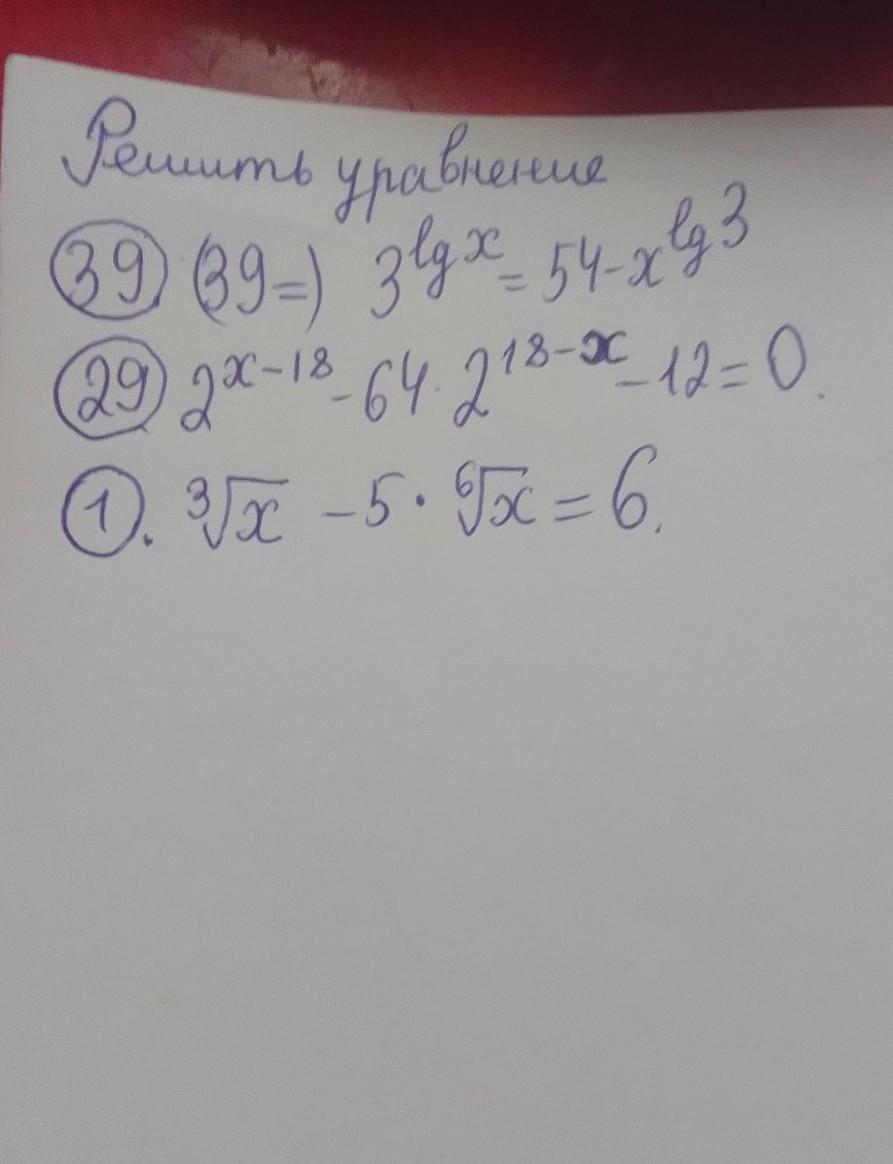 Решить уравнение
39 (39=) 3^{lg x} = 54 - x^{lg 3}
29 2^{x-18} - 64 · 2^{18-x} - 12 = 0.
1. ∛x - 5 · ⁶√x = 6.